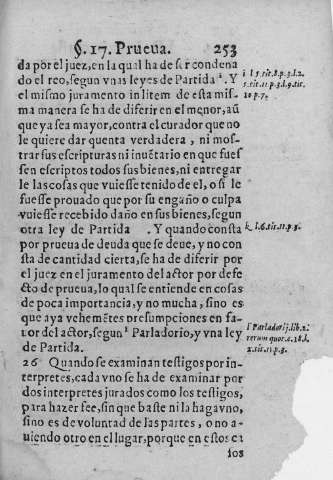 §. 17. Prueua. 253
da por el juez, en la qual ha de ser condena
do el reo, segun vnas leyes de Partida i. Y
el mismo juramento in litem de esta mis-
ma manera se ha de diferir en el menor, aũ
que ya sea mayor, contra el curador que no
le quiere dar quenta verdadera, ni mos-
trar sus escripturas ni inuẽtario en que fues
sen escriptos todos sus bienes, ni entregar
le las cosas que vuiesse tenido de el, o si le
fuesse prouado que por su engaño o culpa
vuiesse recebido daño en sus bienes, segun
otra ley de Partida . Y quando consta
por prueua de deuda que se deue, y no con
sta de cantidad cierta, se ha de diferir por
el juez en el juramento del actor por defe
cto de prueua, lo qual se entiende en cosas
de poca importancia, y no mucha, sino es
que aya vehemẽtes presumpciones en fa-
uor del actor, segun l Parladorio, y vna ley
de Partida.
26 Quando se examinan testigos por in-
terpretes, cada vno se ha de examinar por
dos interpretes jurados como los testigos,
para hazer fee, sin que baste ni la haga vno,
sino es de voluntad de las partes, o no a-
uiendo otro en el lugar, porque en estos ca
sos
i l 5. tit. 8. p. 3. l. 2.
5. tit. 11. p. 3. l. 9. tit.
10 p. 7.
k l. 6. tit. 11. p. 3.
l Parlador. ij. lib. 2.
rerum quot. c. 18. l.
2. tit. 11. p. 3.